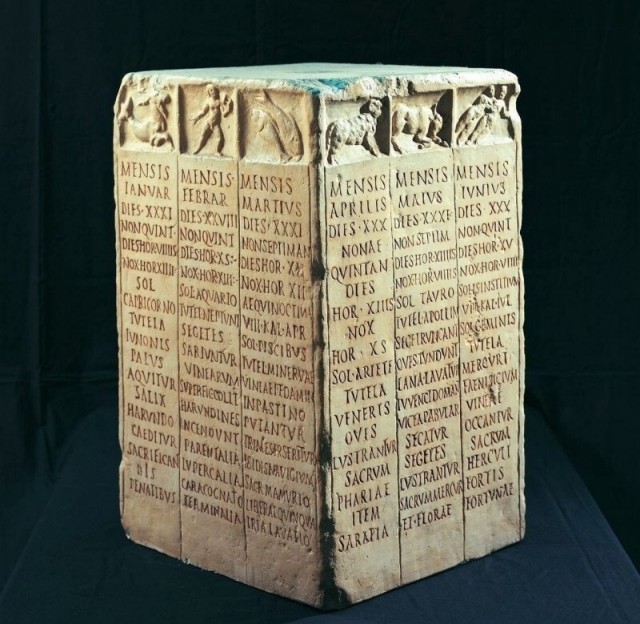 MENSIS
IANVAR
DIES·XXXI
NON·QVINT
DIES·HOR·VIIIIS
NOX·HOR·XIIII
SOL
CAPRICORNO
TVTELA
IVNONIS
PALVS
AQVITVR
SALIX
HARVNDO
CAEDITVR
SACRIFICAN
DIS
PENATIBVS
MENSIS·
FEBRAR
DIES·XXVIII
NON·QVINT
DIES·HOR·XS·
NOX·HOR·XIII
SOL·AQVARIO
TVTEL·NEPTVNI
SEGETES
SARIVNTVR
VINEARVM
SVPERFIC·COLIT
HARVNDINES
INCENDVNT
PARENTALIA
LVPERCALIA
CARA·COGNATIO
TERMINALIA
MENSIS
MARTIVS
DIES·XXXI
NON·SEPTIMAN
DIES·HOR·XII
NOX·HOR·XII
AEQVINOCTIVM
VIII·KAL·APR
SOL·PISCIBVS
TVTEL·MINERVAE
VINEAE
IN·PASTINO
PVTANTVR
TRIMES·SERITVR
ISIDIS·NAVIGIVM
SACR·MAMVRIO
LIBERAL·QVINQVA
TRIA·LAVATIO
MENSIS
APRILIS
DIES·XXX
NONAE
QVINTAN
DIES
HOR·XIIIS
NOX
HOR·XS
SOL·ARIETE
TVTELA
VENERIS
OVES
LVSTRANTVR
SACRVM
PHARIAE
ITEM
SARAPIA
MENSIS
MAIVS
DIES·XXXI
NON·SEPTIM
DIES·HOR·XIIIIS
NOX·HOR·VIIIIS
SOL·TAVRO
TVTEL·APOLLIN
SEGET·RVNCANT
OVES·TVNDVNT
LANA·LAVATVR
IVVENCI·DOMANT
VICEA·PABVLAR
SECATVR
SEGETES
LVSTRANTVR
SACRVM·MERCVR
ET·FLORAE
MENSIS
IVNIVS
DIES·XXX
NON·QVINT
DIES·HOR·XV
NOX·HOR·VIIII
SOLIS·INSTITIVM
VIII·KAL·IVL
SOL·GEMINIS
TVTELA
MERCVRI
FAENISICIVM
VINEAE
OCCANTVR
SACRVM
HERCVLI
FORTIS
FORTVNAE